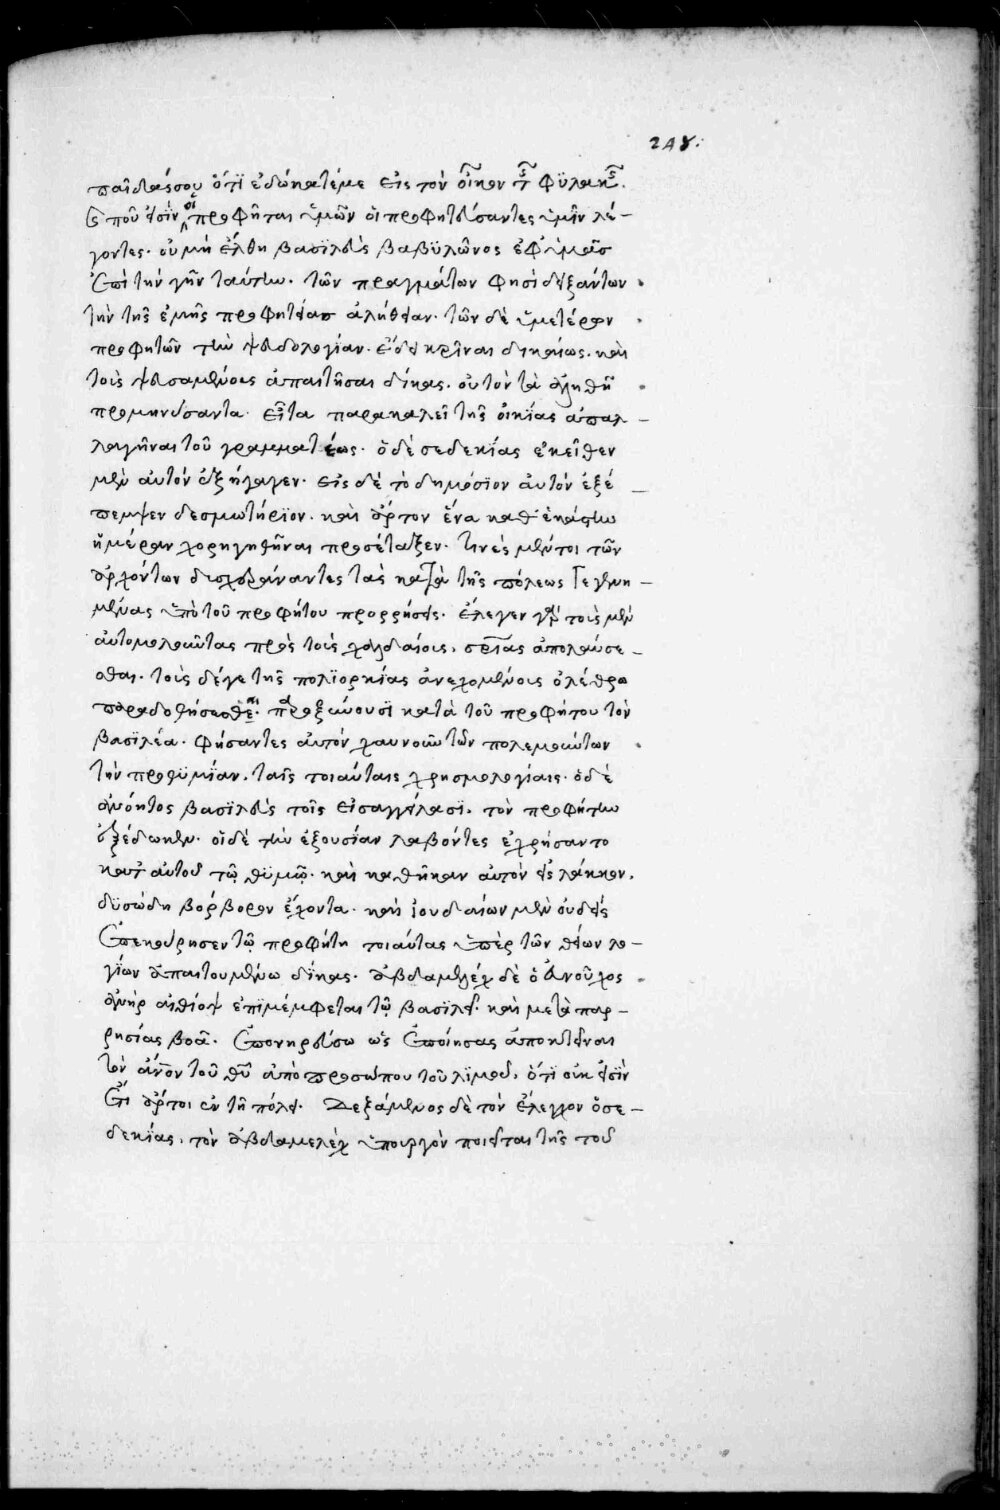 248.
παῖδάς σου ὅτι ἐδώκατέ με εἰς τὸν οἶκον τῆς φυλακῆς.
καὶ ποῦ εἰσὶν οἱ προφῆται ὑμῶν οἱ προφητεύσαντες ὑμῖν λέ-
γοντες· οὐ μὴ ἔλθη βασιλεὺς βαβυλῶνος ἐφ ὑμᾶς
ἐπὶ τὴν γῆν ταύτην· τῶν πραγμάτων φησὶ δειξάντων
τὴν τῆς ἐμῆς προφητείας ἀλήθειαν· τῶν δὲ ὑμετέρων
προφητῶν τὴν ψευδολογίαν· ἔδει κρῖναι δικαίως· καὶ
τοὺς ψευσαμένους ἀπαιτῆσαι δίκας· οὐ τὸν τὰ ἀληθῆ
προμηνύσαντα· εἶτα παρακαλεῖ τῆς οἰκίας ἀπαλ-
λαγῆναι τοῦ γραμματέως· ὁ δὲ σεδεκίας ἐκεῖθεν
μὲν αὐτὸν ἐξήγαγεν· εἰς δὲ τὸ δημόσϊον αὐτὸν ἐξέ
πεμψεν δεσμωτήριον· καὶ ἄρτον ἕνα καθ ἑκάστην
ἡμέραν χορηγηθῆναι προσέταξεν· τινὲς μέντοι τῶν
ἀρχόντων δυσχεράναντες τὰς κατὰ τῆς πόλεως γεγενη-
μένας ὑπὸ τοῦ προφήτου προρρήσεις· ἔλεγεν γὰρ τοὺς μὲν
αὐτομολοῦντας πρὸς τοὺς χαλδαίους, σρίας ἀπολαύσε-
σθαι· τοὺς δέ γε τῆς πολϊορκίας ἀνεχομένους ὀλέθρω
παραδοθήσεσθαι· παροξύνουσι κατὰ τοῦ προφήτου τὸν
βασιλέα· φήσαντες αὐτὸν χαυνοῦν τῶν πολεμούντων
τὴν προθυμίαν, ταῖς τοιαύταις χρησμολογίαις· ὁ δὲ
ἀνόητος βασϊλεὺς τοῖς εἰσαγγείλασι, τὸν προφήτην
ἐξέδωκεν· οἱ δὲ τὴν ἐξουσίαν λαβόντες ἐχρήσαντο
κατ αὐτοῦ τῷ θϋμῷ· καὶ καθῆκαν αὐτὸν εἰς λάκκον,
δϋσώδη βόρβορον ἔχοντα· καὶ ἰουδαίων μὲν οὐδεὶς
ἐπεκούρησεν τῷ προφήτη τοιαύτας ὑπὲρ τῶν θείων λο-
γΐων ἀπαιτουμένω δίκας· ἀβδαμελὲχ δὲ ὁ ἀνοῦχος
ἀνὴρ αἰθίοψ ἐπϊμέμφεται τῷ βασϊλεῖ· καὶ μετὰ παρ-
ρησίας βοᾶ· ἐπονηρεύσω ὡς ἐποίησας ἀποκτεῖναι
τὸν ἄνον τοῦ θυ ἀπὸ προσώπου τοῦ λϊμοῦ, ὅτι οὐκ εἰσὶν
ἔτι ἄρτοι ἐν τῆ πόλει· Δεξάμενος δὲ τὸν ἔλεγχον ὁ σε-
δεκΐας, τὸν ἀβδαμελὲχ ὑπουργὸν ποιεῖται τῆς τοῦ